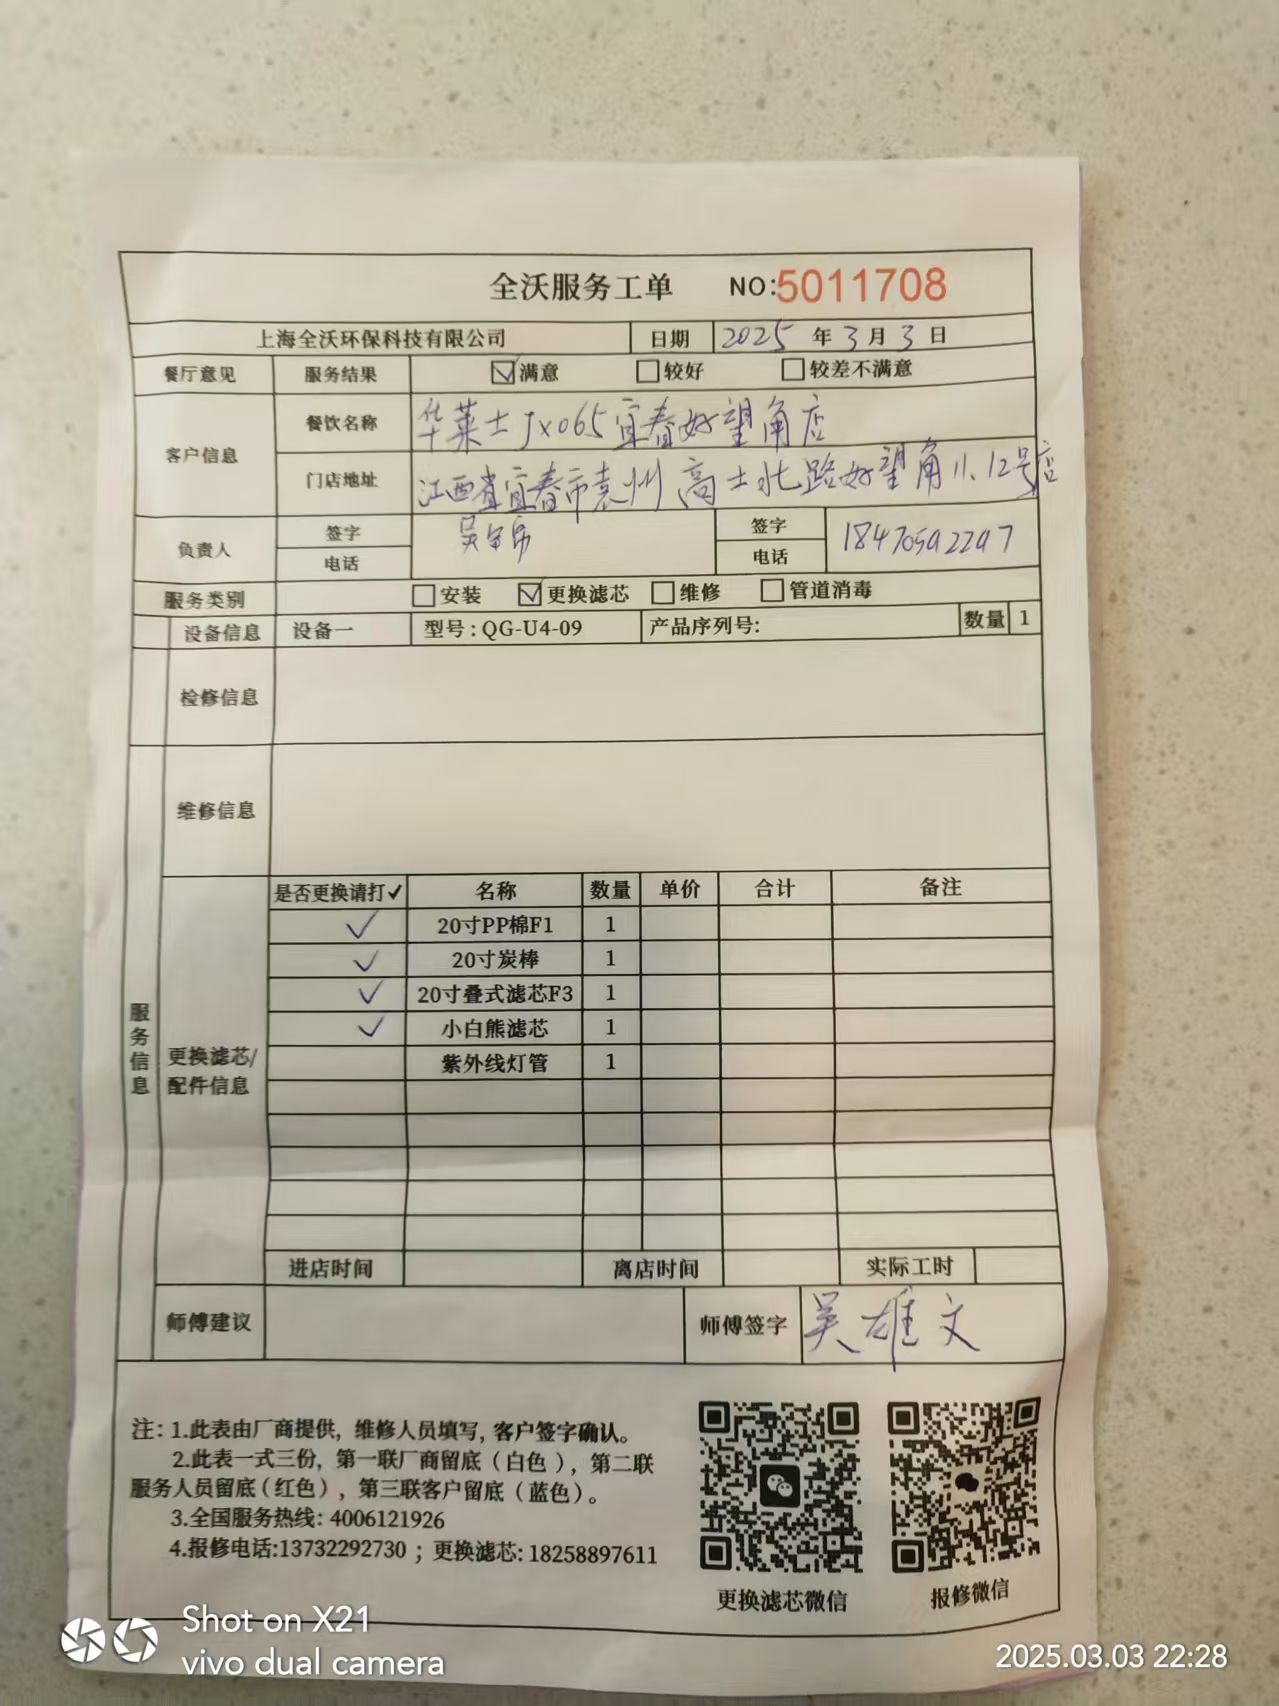 全沃服务工单 NO:5011708
上海全沃环保科技有限公司 日期 2025年3月3日
餐厅意见 服务结果 ☑满意 □较好 □较差不满意
客户信息 餐饮名称 华莱士Jx065宜春好望角店
门店地址 江西省宜春市袁州高士北路好望角11.12号店
负责人 签字 签字
电话 电话 18470592297
服务类别 □安装 ☑更换滤芯 □维修 □管道消毒
设备信息 设备一 型号:QG-U4-09 产品序列号: 数量 1
检修信息
维修信息
服务信息
更换滤芯/配件信息
是否更换请打✓ 名称 数量 单价 合计 备注
✓ 20寸PP棉F1 1
✓ 20寸炭棒 1
✓ 20寸叠式滤芯F3 1
✓ 小白熊滤芯 1
紫外线灯管 1
进店时间 离店时间 实际工时
师傅建议 师傅签字 吴雄文
注:1.此表由厂商提供,维修人员填写,客户签字确认。
2.此表一式三份,第一联厂商留底(白色),第二联
服务人员留底(红色),第三联客户留底(蓝色)。
3.全国服务热线: 4006121926
4.报修电话:13732292730;更换滤芯:18258897611
更换滤芯微信 报修微信
Shot on X21
vivo dual camera
2025.03.03 22:28